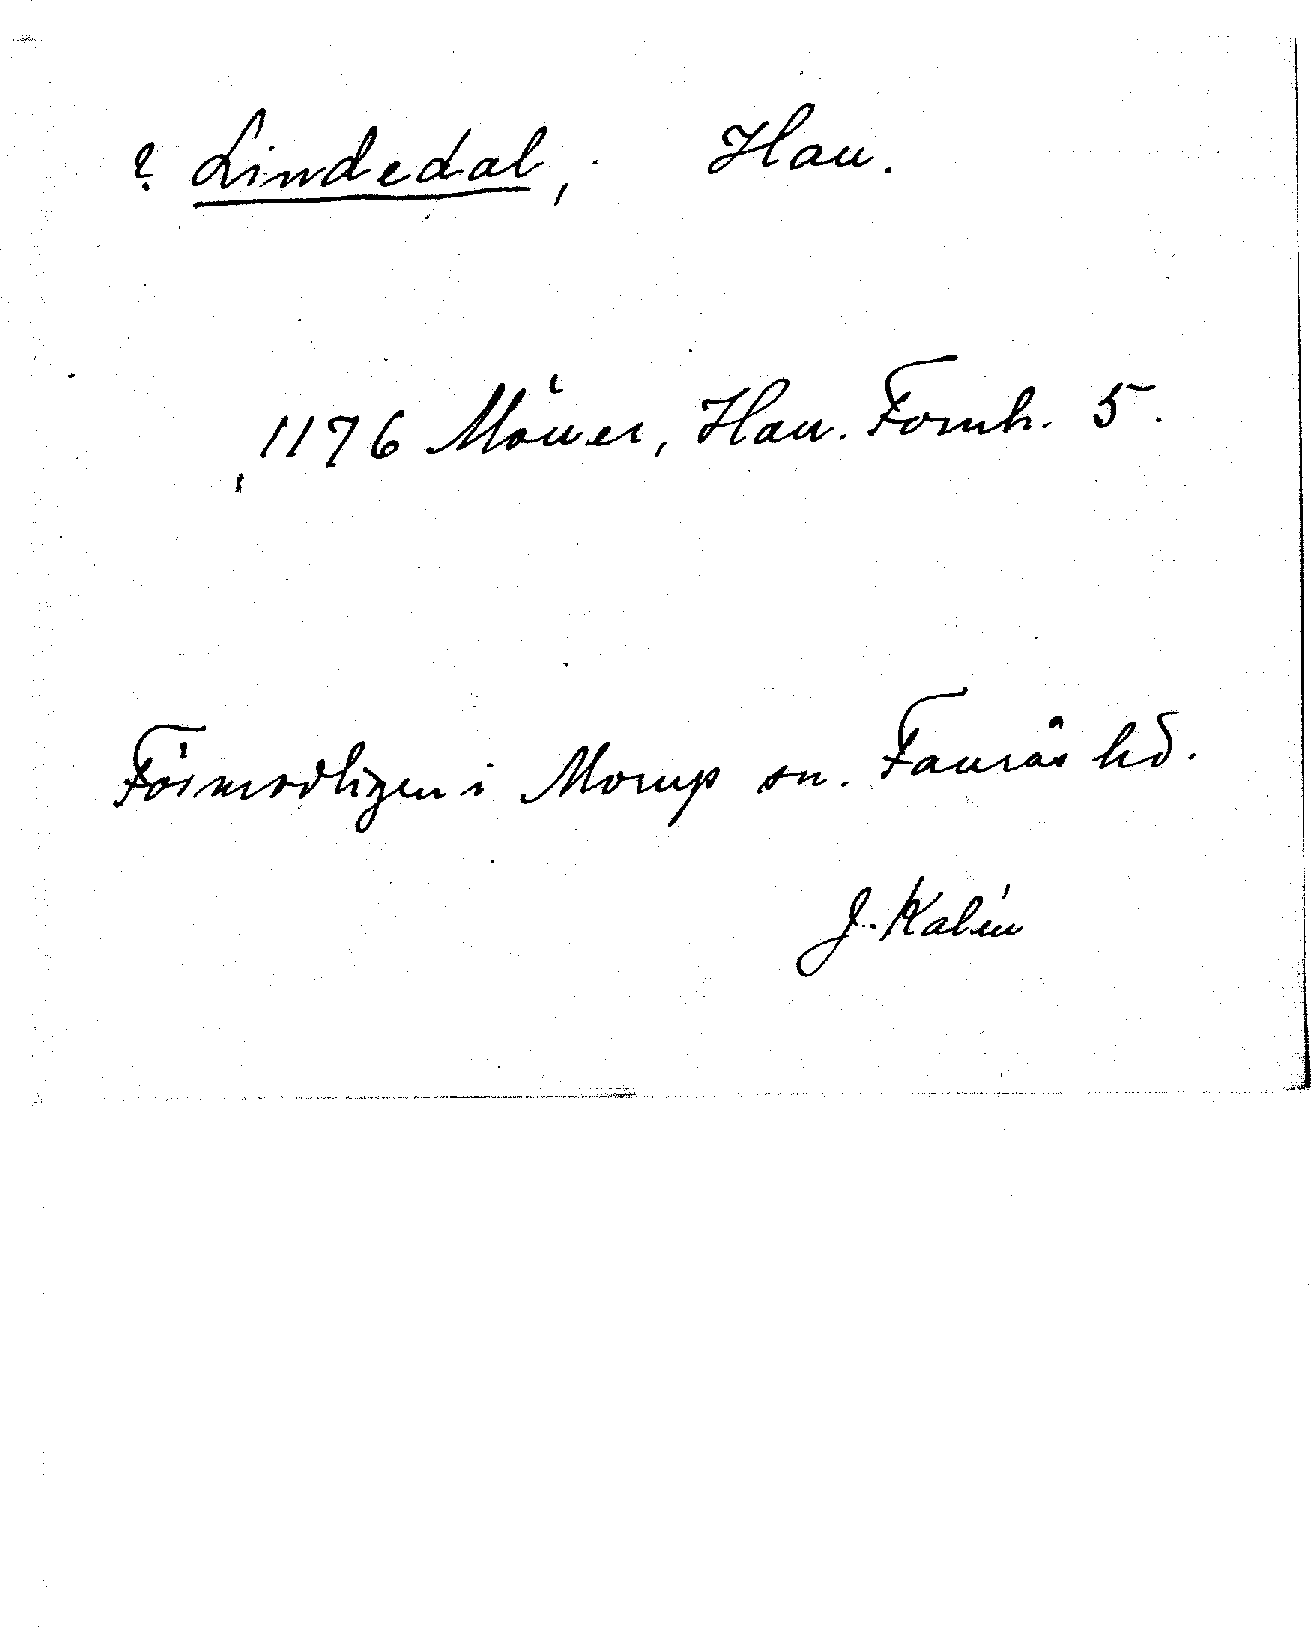 ? Lindedal, Hall.
1176 Möller, Hall. Fornh. 5.
Förmodligen i Morup sn. Faurås hd.
J. Kalén